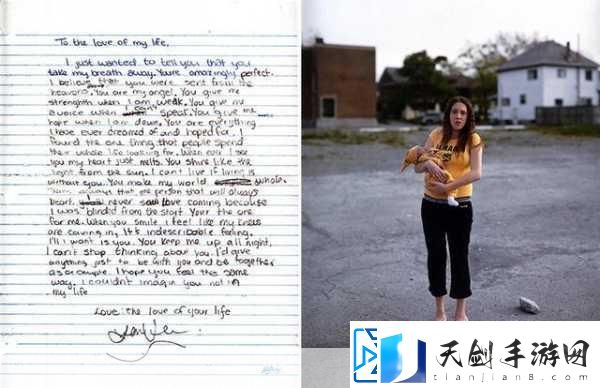 To the love of my life,
I just wanted to tell you that you
take my breath away. Youre amazingly perfect.
I believe that you were sent from the
heavens. You are my angel. You give me
strenghth when I am weak. You give me
a voice when I cant speak. You give me
hope when I am down. You are everything
I have ever dreamed of and hoped for. I
found the one thing that people spend
their whole life looking for. When ever I see
you my heart just melts. You shine like the
light from the sun. I can't live if living is
without you. You make my world whole.
always that one person that will always
heart. I never saw love coming because
I was blinded from the start. Your the one
for me. When you smile I feel like my knees
are caving in. It's indescribable feeling.
I want is you. You keep me up all night,
I can't stop thinking about you. I'd give
anything just to be with you and be together
as a couple. I hope you feel the same
way. I couldn't imagine you not in
my life
Love: the love of your life
天剑手游网
tianjian8.com